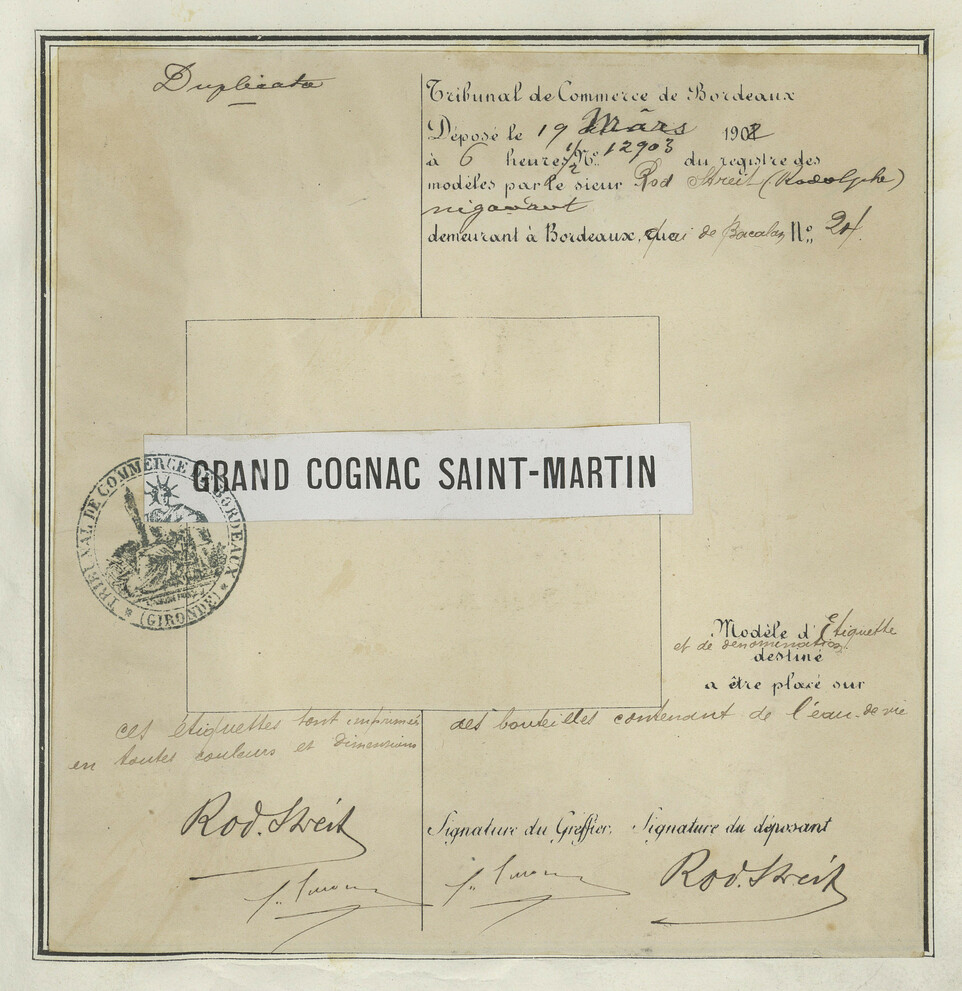 Duplicata
Tribunal de Commerce de Bordeaux
Déposé le 19 Mars 1902
à 6 heures 1/2 No. 12903 du registre des
modèles par le sieur Rod Streit (Rodolphe)
négociant
demeurant à Bordeaux, quai de Bacalan No. 24.
GRAND COGNAC SAINT-MARTIN
TRIBUNAL DE COMMERCE DE BORDEAUX
* (GIRONDE) *
Modèle d'Etiquette
et de dénomination
destiné
a être placé sur
des bouteilles contenant de l'eau-de-vie
ces étiquettes sont imprimées
en toutes couleurs et dimensions
Rod. Streit
Signature du Greffier. Signature du déposant
Rod. Streit